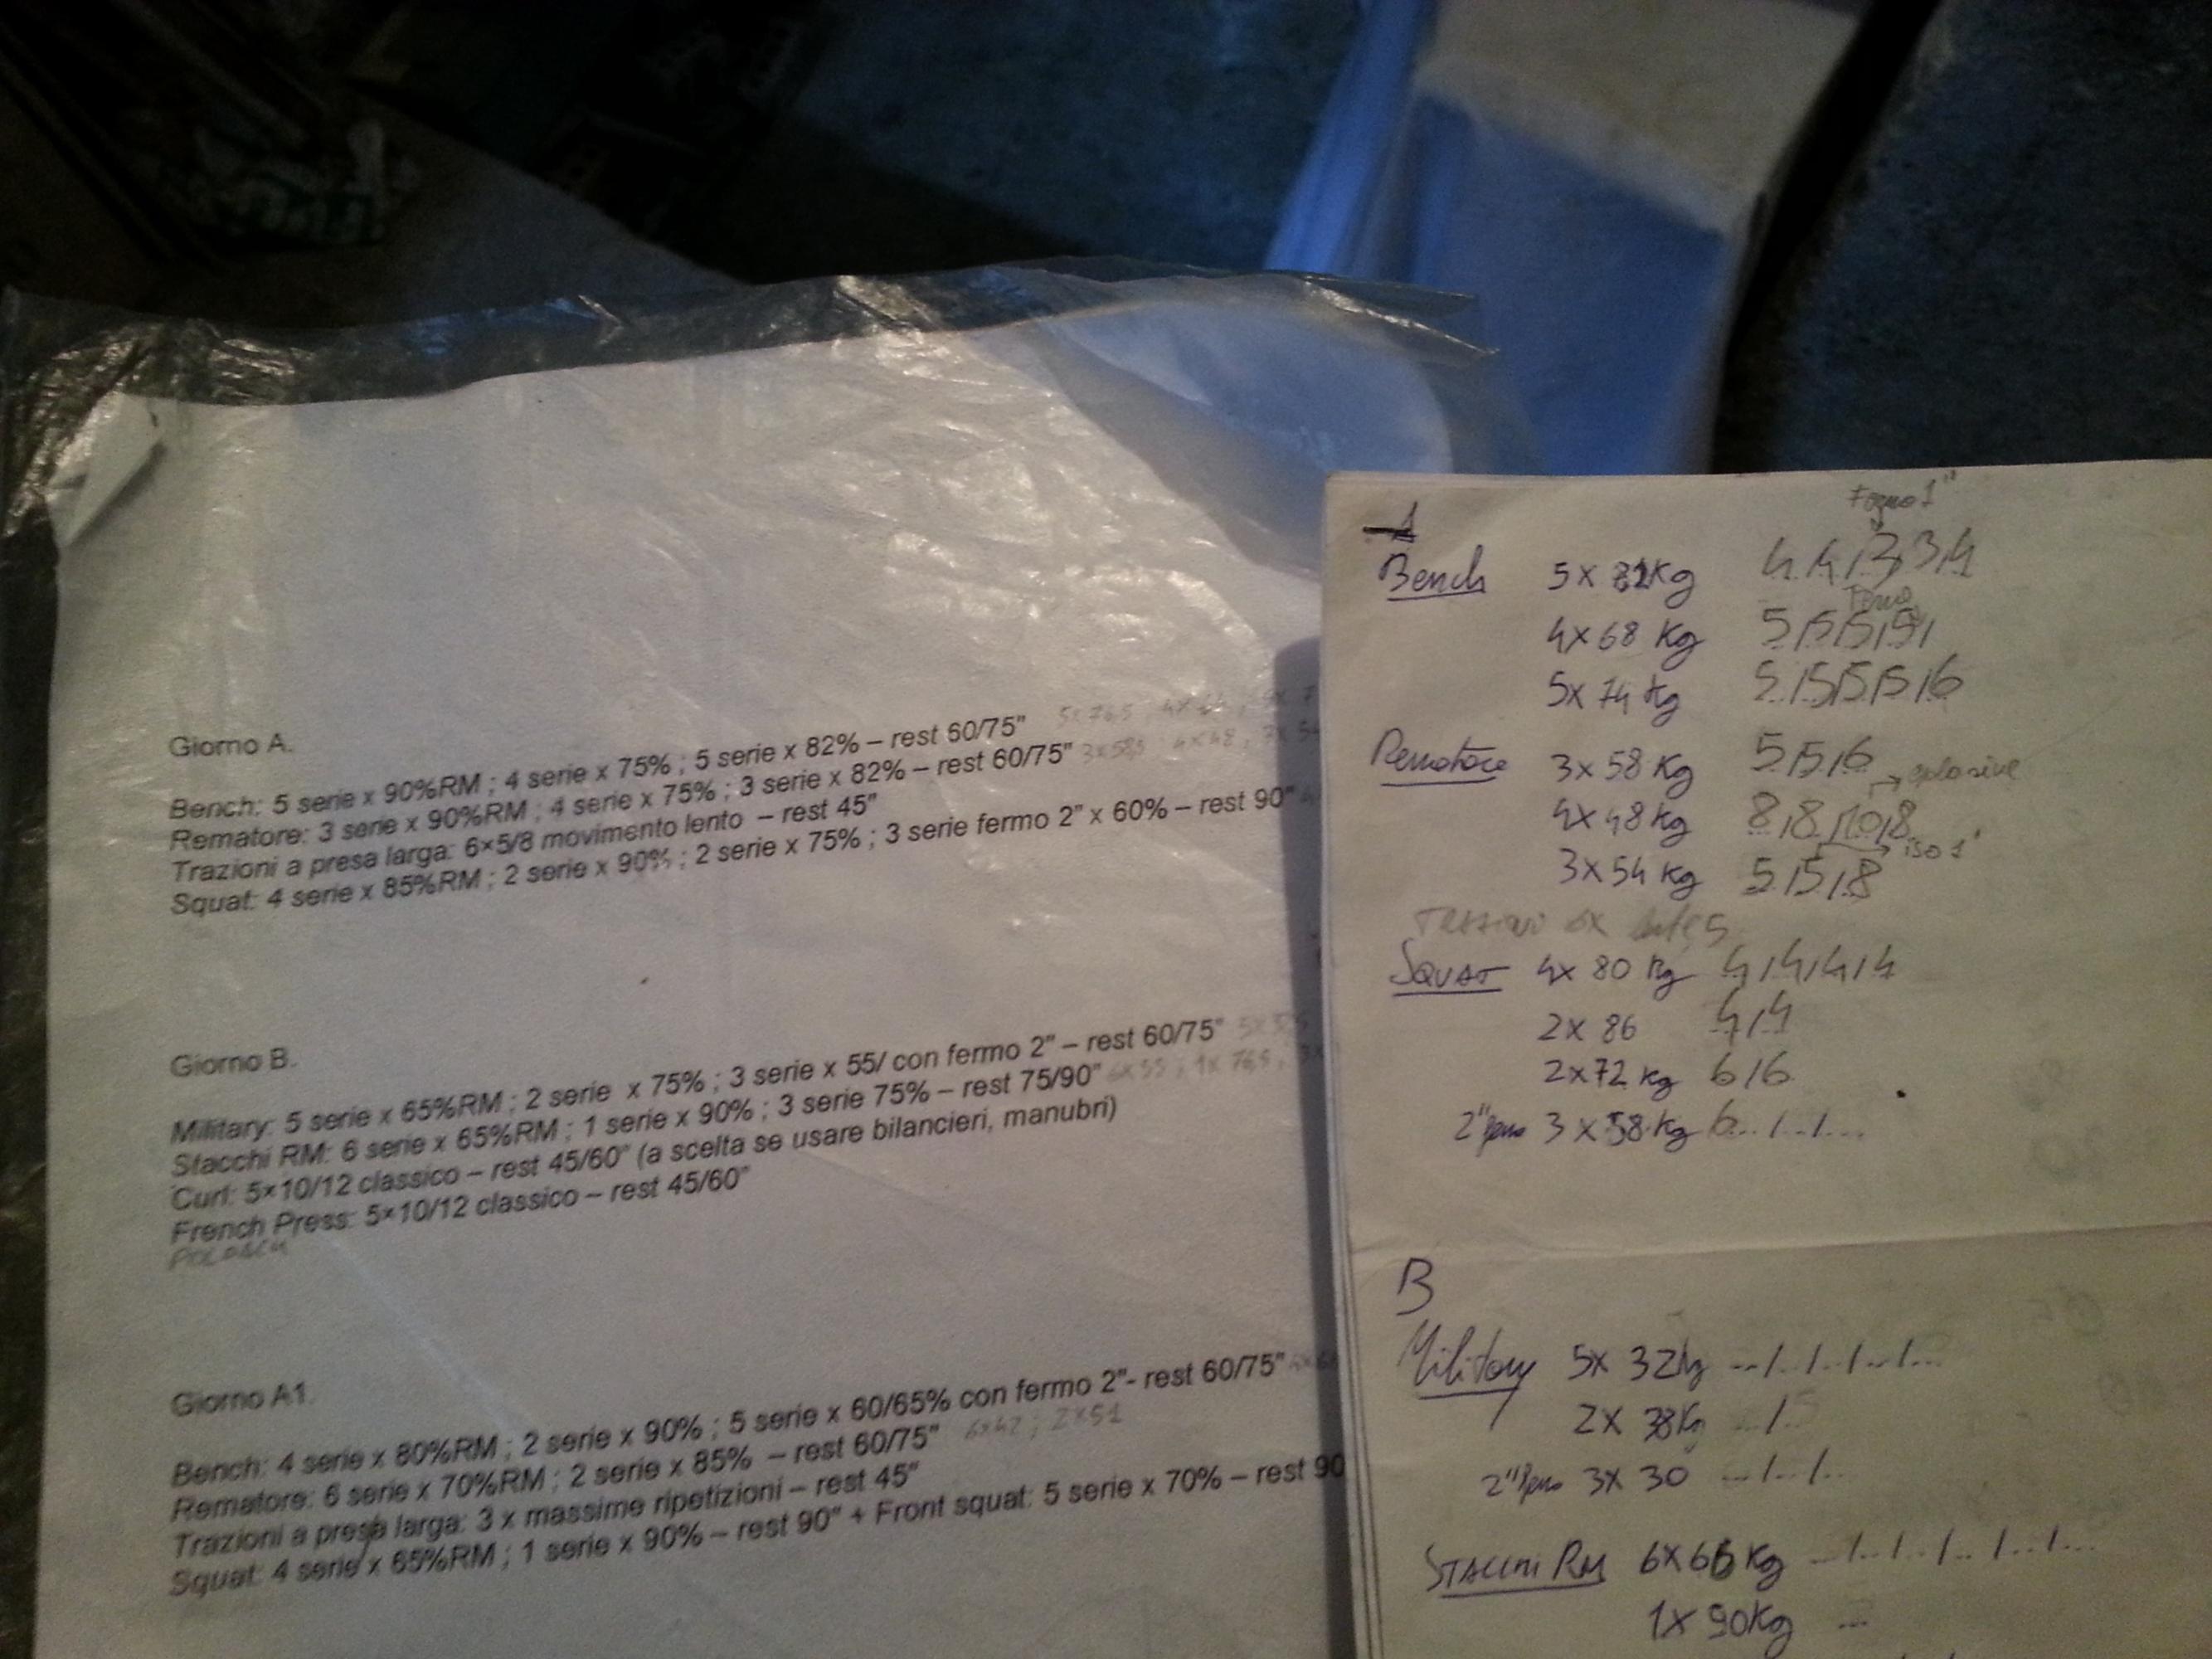 Giorno A.
Bench: 5 serie x 90%RM ; 4 serie x 75% ; 5 serie x 82% – rest 60/75" 5x76,5 ; 4x64 ;
Rematore: 3 serie x 90%RM ; 4 serie x 75% ; 3 serie x 82% – rest 60/75" 4x48 ;
Trazioni a presa larga: 6×5/8 movimento lento – rest 45"
Squat: 4 serie x 85%RM ; 2 serie x 90% ; 2 serie x 75% ; 3 serie fermo 2" x 60% – rest 90"
Giorno B.
Military: 5 serie x 65%RM ; 2 serie x 75% ; 3 serie x 55/ con fermo 2" – rest 60/75"
Stacchi RM: 6 serie x 65%RM ; 1 serie x 90% ; 3 serie 75% – rest 75/90" 6x55 ; 1x76,5 ,
Curl: 5×10/12 classico – rest 45/60" (a scelta se usare bilancieri, manubri)
French Press: 5×10/12 classico – rest 45/60"
Giorno A1.
Bench: 4 serie x 80%RM ; 2 serie x 90% ; 5 serie x 60/65% con fermo 2"- rest 60/75"
Rematore: 6 serie x 70%RM ; 2 serie x 85% – rest 60/75" 6x42 ; 2x51
Trazioni a presa larga: 3 x massime ripetizioni – rest 45"
Squat: 4 serie x 65%RM ; 1 serie x 90% – rest 90" + Front squat: 5 serie x 70% – rest 90
Fermo 1"
A
Bench 5x 82Kg 4/4/3/3/4
Fermo
4x68 Kg 5/5/5/5/
5x 74 Kg 5/5/5/5/6
Rematore 3x58 Kg 5/5/6
esplosive
4x48Kg 8/8/10/8
iso 1"
3x54 Kg 5/5/8
Trazioni 6x 5
SQUAT 4x 80 Kg 4/4/4/4
2x 86 4/4
2x72 Kg 6/6
2" fermo 3x58 Kg 6.../.../...
B
Military 5x 32Kg .../.../.../.../...
2x 38Kg .../
2" fermo 3x 30 .../.../...
STACCHI RM 6x66 Kg .../.../.../.../.../...
1x 90Kg ...